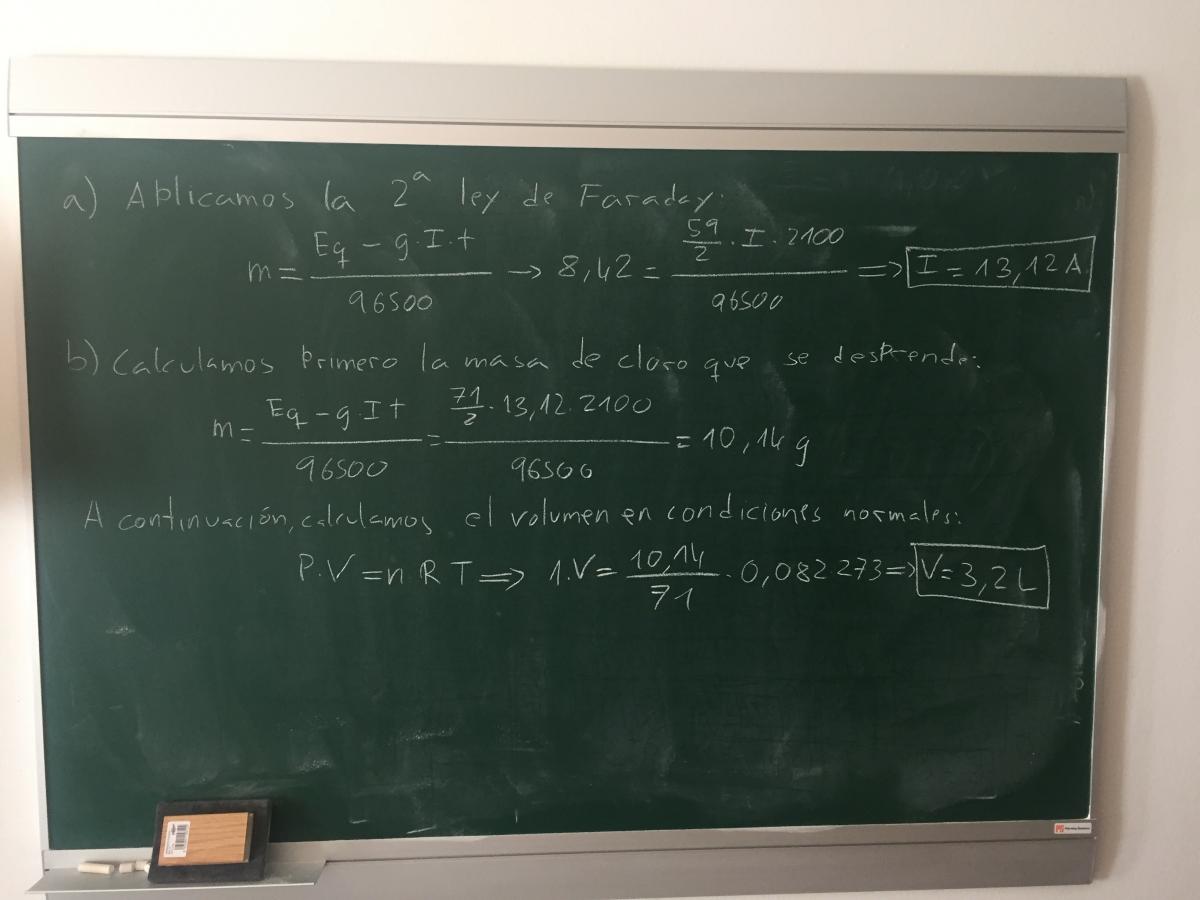 a) Ablicamos la 2ª ley de Faraday:
m = Eq - g · I · t / 96500 → 8,42 = 59/2 · I · 2100 / 96500 => I = 13,12 A
b) Calculamos primero la masa de cloro que se desprende:
m = Eq - g · I t / 96500 = 71/2 · 13,12 · 2100 / 96500 = 10,14 g
A continuación, calculamos el volumen en condiciones normales:
P.V = n R T => 1.V = 10,14 / 71 · 0,082 273 => V = 3,2 L